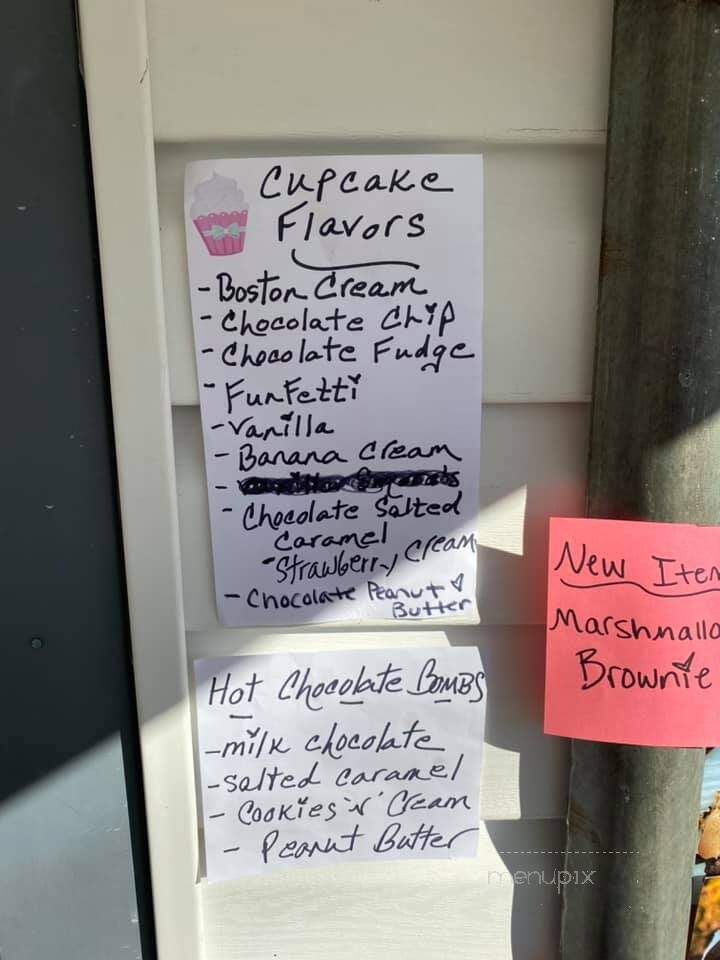 Cupcake
Flavors
- Boston Cream
- Chocolate Chip
- Chocolate Fudge
- Funfetti
- Vanilla
- Banana Cream
-
- Chocolate Salted
Caramel
- Strawberry Cream
- Chocolate Peanut
Butter
Hot Chocolate BOMBS
- milk chocolate
- salted caramel
- Cookies 'N' Cream
- Peanut Butter
New Item
Marshmallo
Brownie
menupix